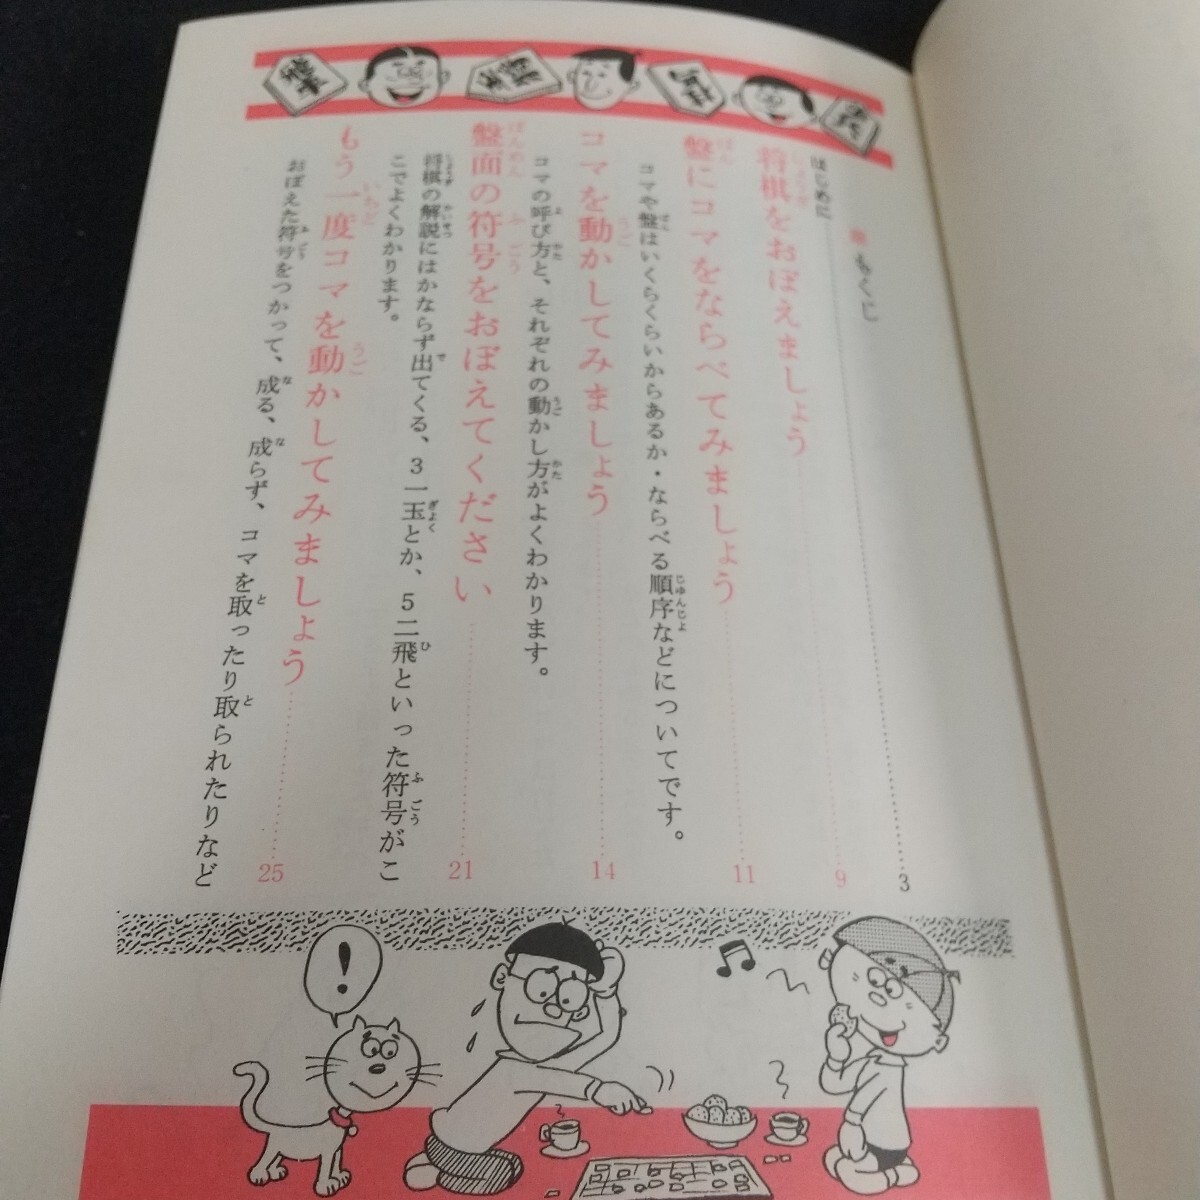 もくじ
はじめに 3
将棋をおぼえましょう 9
盤にコマをならべてみましょう 11
コマや盤はいくらくらいからあるか・ならべる順序などについてです。
コマを動かしてみましょう 14
コマの呼び方と、それぞれの動かし方がよくわかります。
盤面の符号をおぼえてください 21
将棋の解説にはかならず出てくる、3一玉とか、5二飛といった符号がこ
こでよくわかります。
もう一度コマを動かしてみましょう 25
おぼえた符号をつかって、成る、成らず、コマを取ったり取られたりなど
!